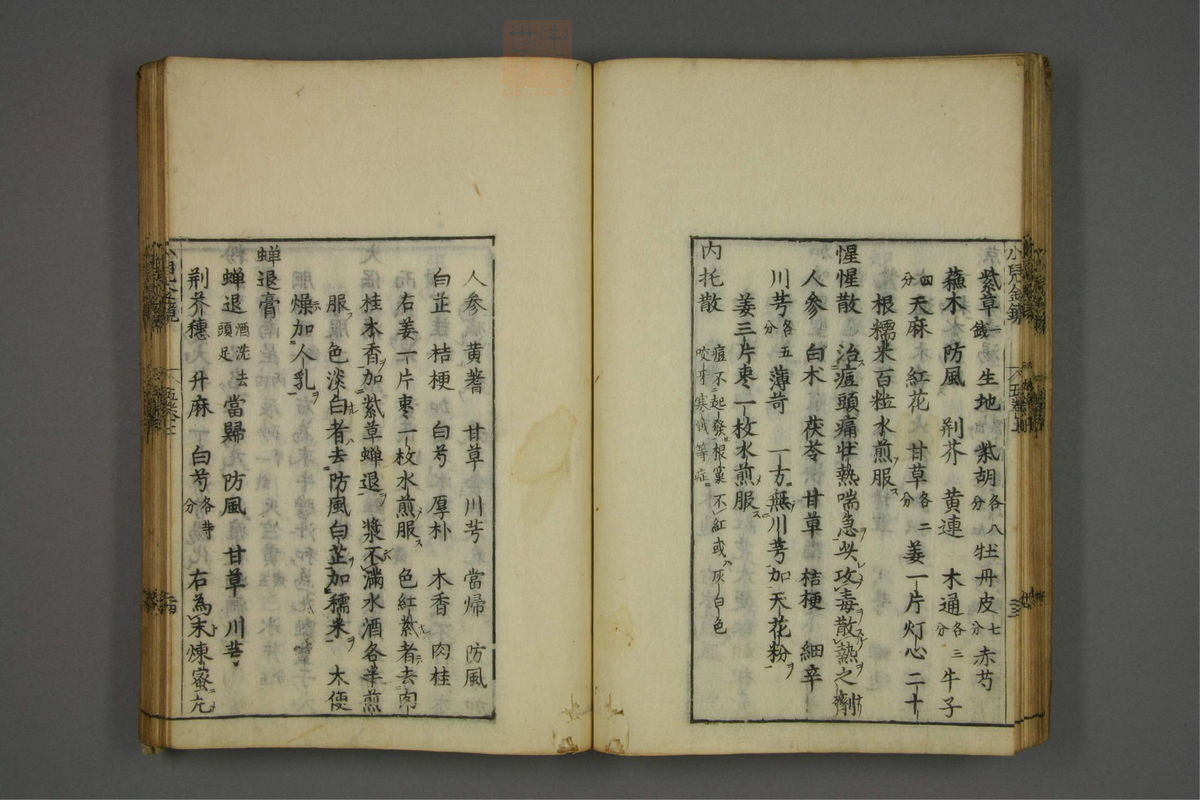 紫草一錢 生地 柴胡各八分 牡丹皮七分 赤芍
蘓木 防風 荆芥 黄連 木通各三分 牛子
四分天麻 紅花 甘草各二分 姜一片灯心二十
根糯米百粒水煎服
惺惺散 治痘頭痛壮熱喘急此攻毒散熱之劑
人参 白朮 茯苓 甘草 桔梗 細辛
川芎各五分 薄苛 一方無川芎加天花粉
姜三片棗一枚水煎服
内托散 痘不起發根窠不紅或灰白色咬牙寒戦等症
人参 黄蓍 甘草 川芎 當帰 防風
白芷 桔梗 白芍 厚朴 木香 肉桂
右姜一片棗一枚水煎服 色紅紫者去肉
桂木香加紫草蝉退 漿不満水酒各半煎
服 色淡白者去防風白芷加糯米 大便
燥加人乳
蝉退膏
蝉退酒洗去頭足 當歸 防風 甘草 川芎
荆芥穂 升麻 白芍各等分 右為末煉蜜丸